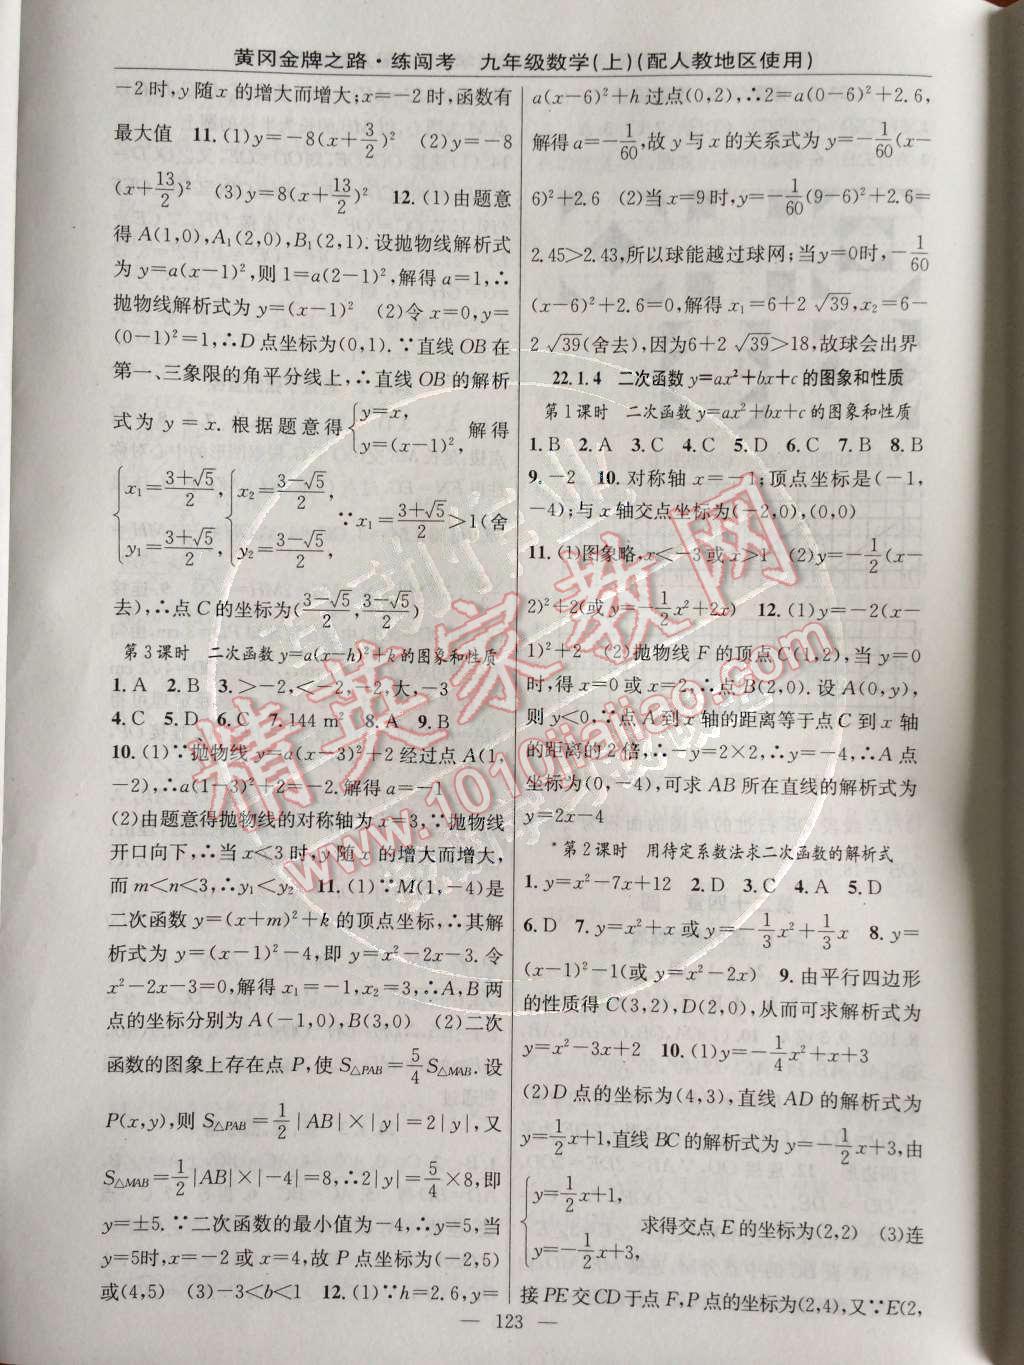 黄冈金牌之路·练闯考　九年级数学(上)(配人教地区使用)
-2时,y随x的增大而增大;x=-2时,函数有
最大值　11. (1)y=-8(x+3/2)²　(2)y=-8
(x+13/2)²　(3)y=8(x+13/2)²　12. (1)由题意
得A(1,0),A₁(2,0),B₁(2,1).设抛物线解析式
为y=a(x-1)²,则1=a(2-1)²,解得a=1,∴
抛物线解析式为y=(x-1)²　(2)令x=0,y=
(0-1)²=1,∴D点坐标为(0,1).∵直线OB在
第一、三象限的角平分线上,∴直线OB的解析
式为y=x.根据题意得{y=x, y=(x-1)², 解得
{x₁=(3+√5)/2, y₁=(3+√5)/2, {x₂=(3-√5)/2, y₂=(3-√5)/2, ∵x₁=(3+√5)/2>1(舍
去),∴点C的坐标为((3-√5)/2,(3-√5)/2)
第3课时　二次函数y=a(x-h)²+k的图象和性质
1. A　2. B　3. >-2,<-2,-2,大,-3
4. C　5. D　6. C　7. 144 m²　8. A　9. B
10. (1)∵抛物线y=a(x-3)²+2经过点A(1,
-2),∴a(1-3)²+2=-2.解得a=-1
(2)由题意得抛物线的对称轴为x=3,∵抛物线
开口向下,∴当x<3时,y随x的增大而增大,
而m<n<3,∴y₁<y₂　11. (1)∵M(1,-4)是
二次函数y=(x+m)²+k的顶点坐标,∴其解
析式为y=(x-1)²-4,即y=x²-2x-3.令
x²-2x-3=0,解得x₁=-1,x₂=3,∴A,B两
点的坐标分别为A(-1,0),B(3,0)　(2)二次
函数的图象上存在点P,使S△PAB=5/4S△MAB.设
P(x,y),则S△PAB=1/2|AB|×|y|=2|y|,又
S△MAB=1/2|AB|×|-4|=8,∴2|y|=5/4×8,即
y=±5.∵二次函数的最小值为-4,∴y=5,当
y=5时,x=-2或x=4,故P点坐标为(-2,5)
或(4,5)　(3)-3<b<1　12. (1)∵h=2.6,y=
a(x-6)²+h过点(0,2),∴2=a(0-6)²+2.6,
解得a=-1/60,故y与x的关系式为y=-1/60(x-
6)²+2.6　(2)当x=9时,y=-1/60(9-6)²+2.6=
2.45>2.43,所以球能越过球网;当y=0时,-1/60
(x-6)²+2.6=0,解得x₁=6+2√39,x₂=6-
2√39(舍去),因为6+2√39>18,故球会出界
22.1.4　二次函数y=ax²+bx+c的图象和性质
第1课时　二次函数y=ax²+bx+c的图象和性质
1. B　2. A　3. C　4. C　5. D　6. C　7. B　8. B
9. -2　10. 对称轴x=-1;顶点坐标是(-1,
-4);与x轴交点坐标为(-2,0),(0,0)
11. (1)图象略,x<-3或x>1　(2)y=-1/2(x-
2)²+2(或y=-1/2x²+2x)　12. (1)y=-2(x-
1)²+2　(2)抛物线F的顶点C(1,2),当y=0
时,得x=0或x=2,∴点B(2,0).设A(0,y),
则y<0,∵点A到x轴的距离等于点C到x轴
的距离的2倍,∴-y=2×2,∴y=-4,∴A点
坐标为(0,-4),可求AB所在直线的解析式为
y=2x-4
*第2课时　用待定系数法求二次函数的解析式
1. y=x²-7x+12　2. D　3. D　4. A　5. D
6. D　7. y=x²+x或y=-1/3x²+1/3x　8. y=
(x-1)²-1(或y=x²-2x)　9. 由平行四边形
的性质得C(3,2),D(2,0),从而可求解析式为
y=x²-3x+2　10. (1)y=-1/4x²+x+3
(2)D点的坐标为(4,3),直线AD的解析式为
y=1/2x+1,直线BC的解析式为y=-1/2x+3,由
{y=1/2x+1, y=-1/2x+3, 求得交点E的坐标为(2,2)　(3)连
接PE交CD于点F,P点的坐标为(2,4),又∵E(2,
— 123 —
精英家教网
www.1010jiajiao.com